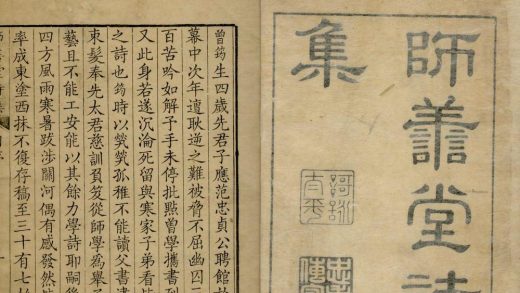 師善堂詩
集
歌詠太平
曾筠生四歲先君子應范忠貞公聘館於
幕中次年遭耿逆之難被脅不屈幽囚
百苦吟如解予手未停批點曾學攜書
又此身若遂沉淪死留與寒家子弟看
之詩也筠時以煢煢孤稚不能讀父書
束髮奉先太君慈訓負笈從師學爲舉
藝且不能工安能以其餘力學詩耶嗣
四方風雨寒暑跋涉關河偶有感發然
率成東塗西抹不復存稿至三十有七